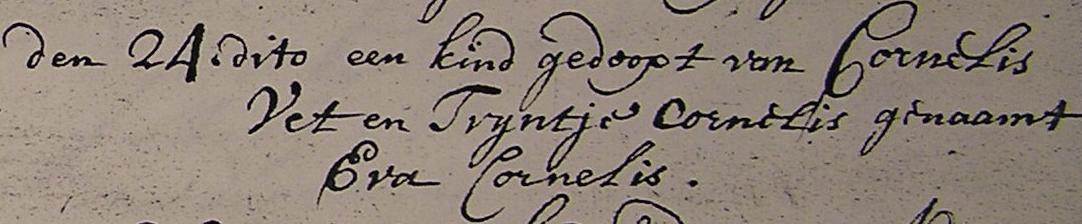 den 24 dito een kind gedoopt van Cornelis
Vet en Tryntje Cornelis genaamt
Eva Cornelis.